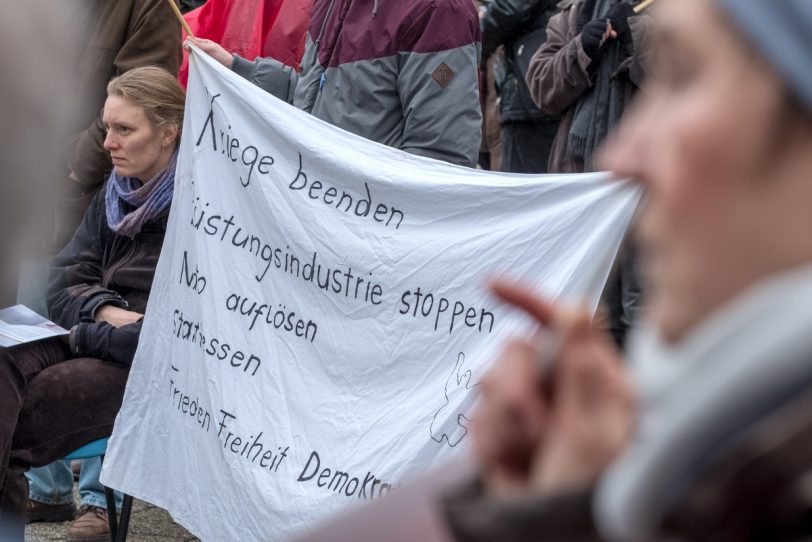 Kriege beenden
Rüstungsindustrie stoppen
Nato auflösen
Frieden Freiheit Demokra